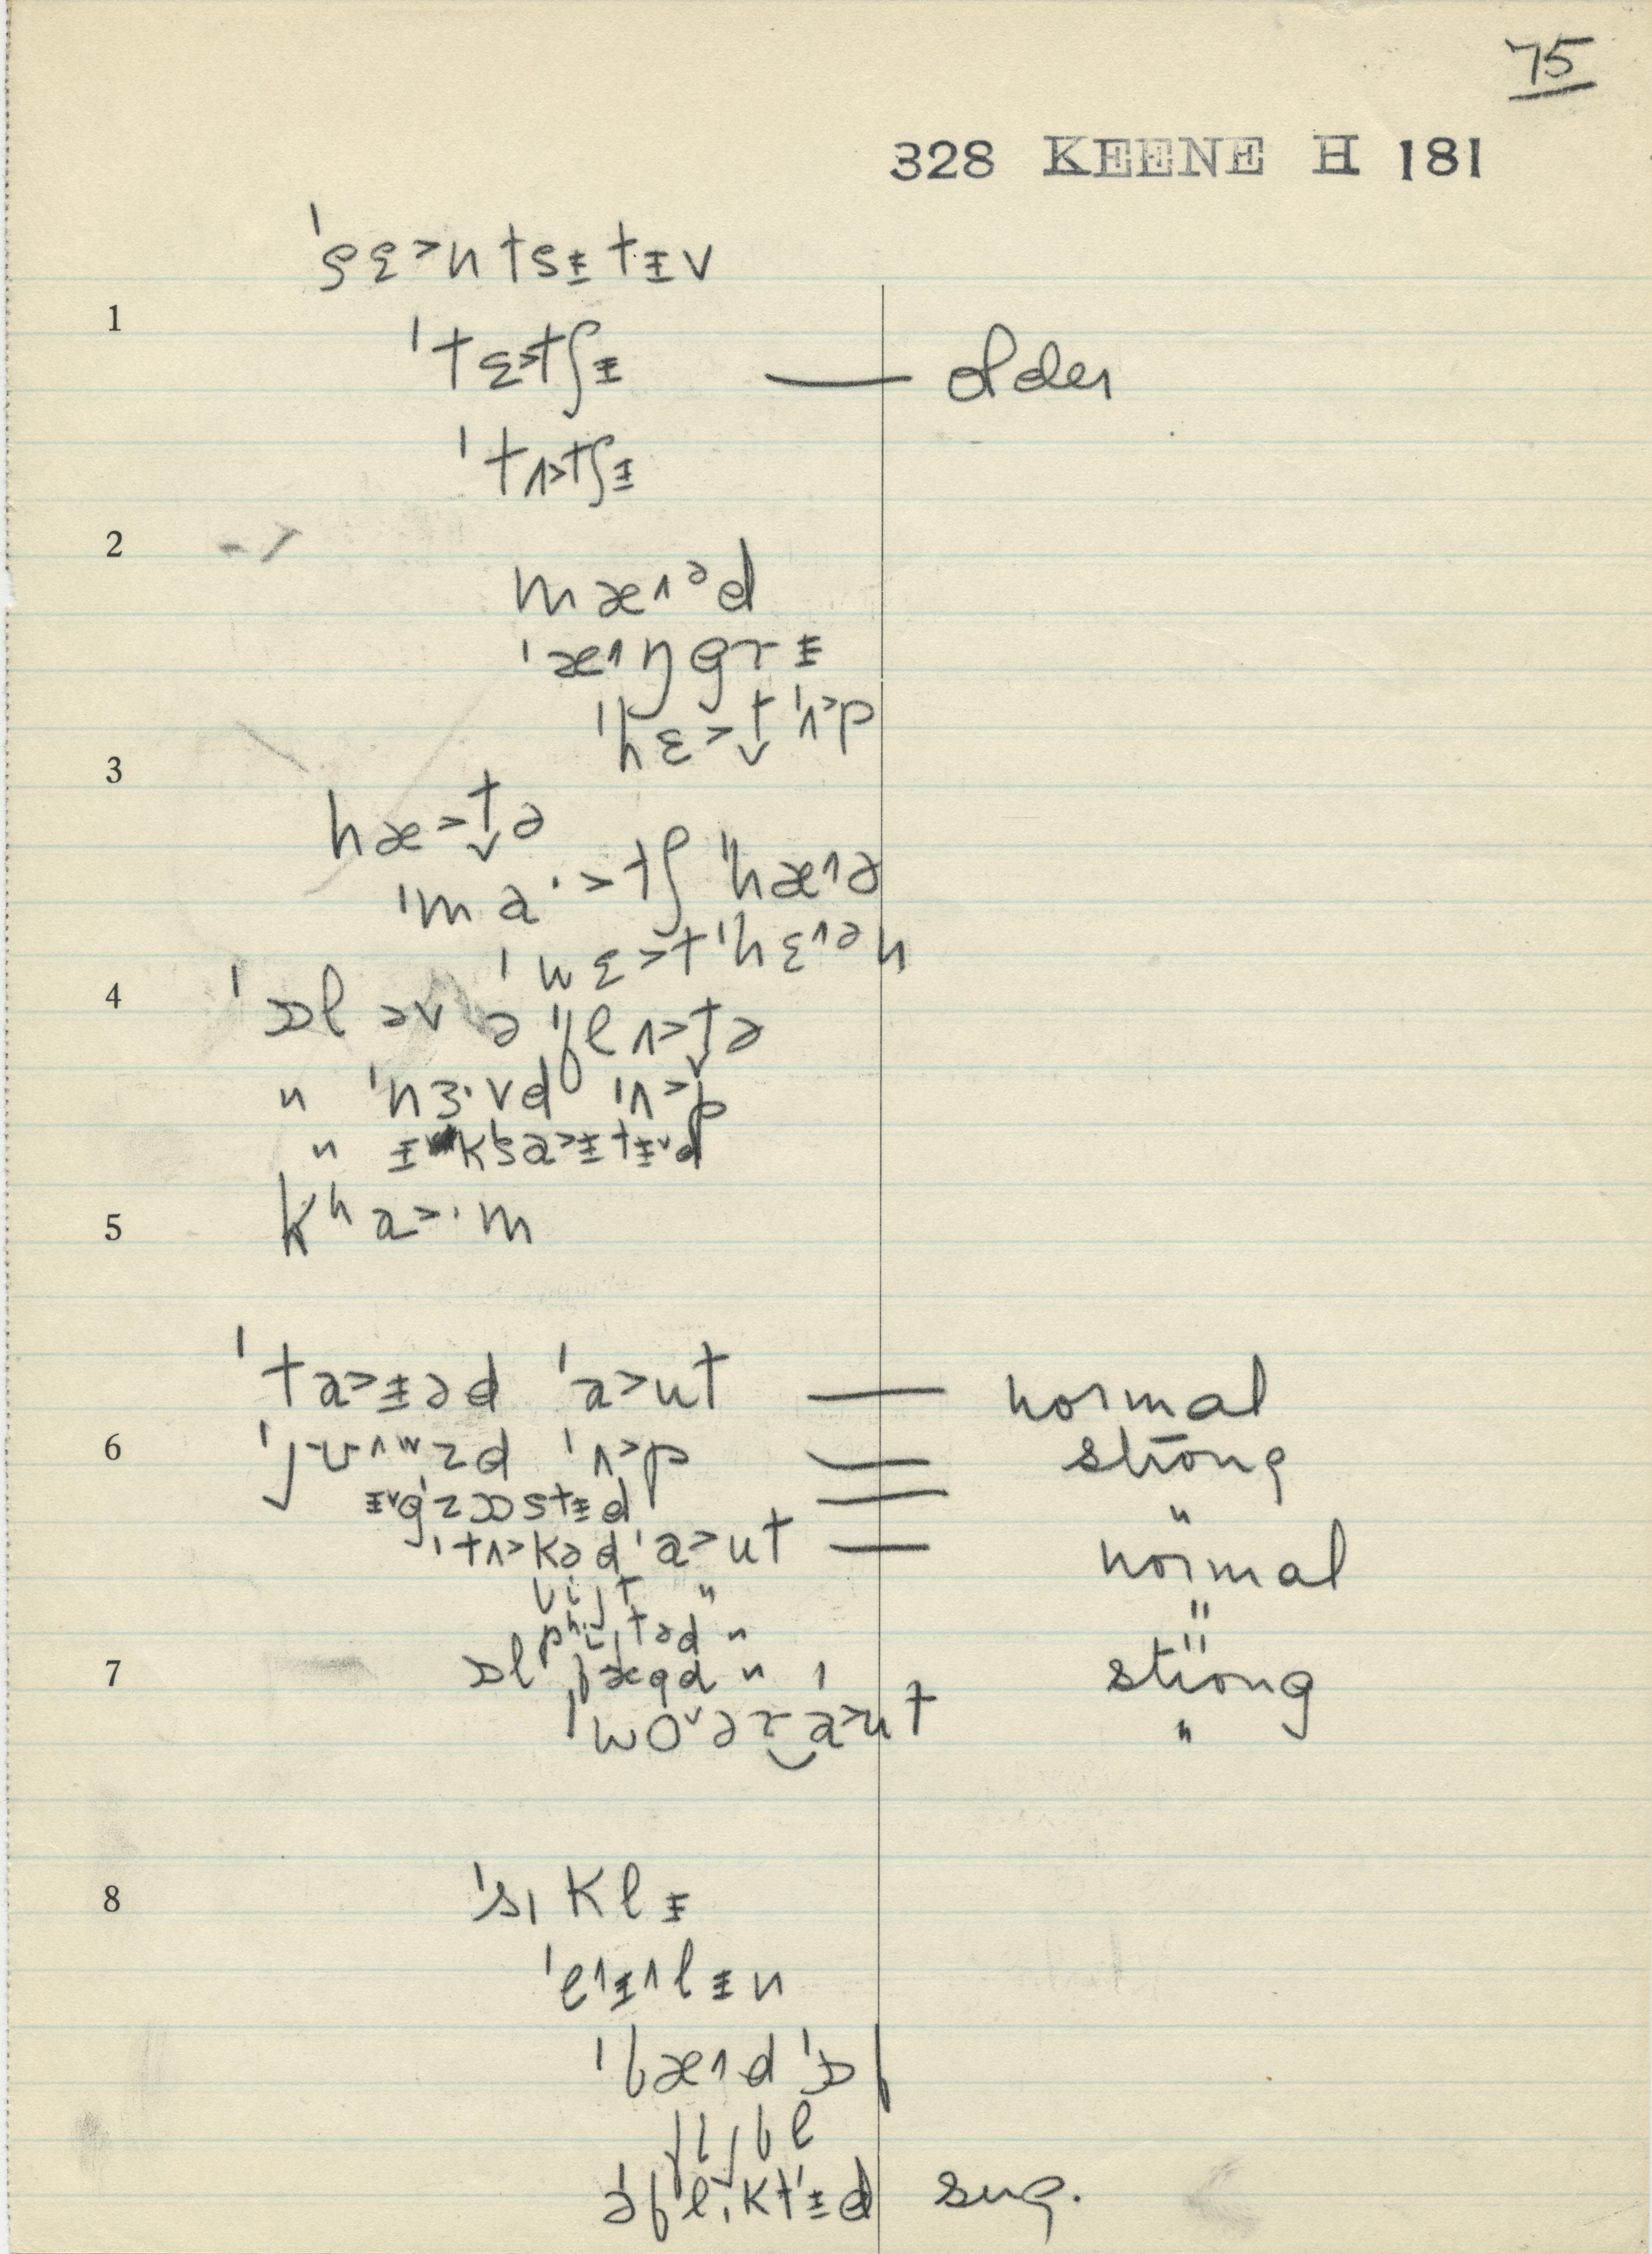 75
328 KEENE H 181
ˈsɛ˃ntsɨtɨv
1
ˈtɛ˃tʃɨ — older
ˈtʌ˃tʃɨ
2
mæ˄ᵊd
ˈæ˄ŋgrɨ
ˈhɛ˃t̬ ˈʌ˃p
3
hæ˃t̬ə
ˈma·˃tʃ ˈhæ˄ə
ˈwɛ˃t ˈhɛ˄ᵊn
4
ˈɒl əv ə ˈflʌ˃t̬ə
" ˈnɜ·vd ˈʌ˃p
" ɨ˅kˈsa˃ɨtɨ˅d
5
kʰa˃·m
ˈta˃ɨəd ˈa˃ut — normal
6
ˈjʊ˄ʷzd ˈʌ˃p — strong
ɨ˅gˈzɒstɨd — "
ˈtʌ˃kəd ˈa˃ut — normal
bijt " "
7
ɒl fægd " strong
ˈwo˅ər‿ˈa˃ut "
8
ˈsɪklɨ
ˈe˄ɨ˄lɨn
ˈbæ˄d ˈɒf
fijbl
əˈflɪktɨd sug.